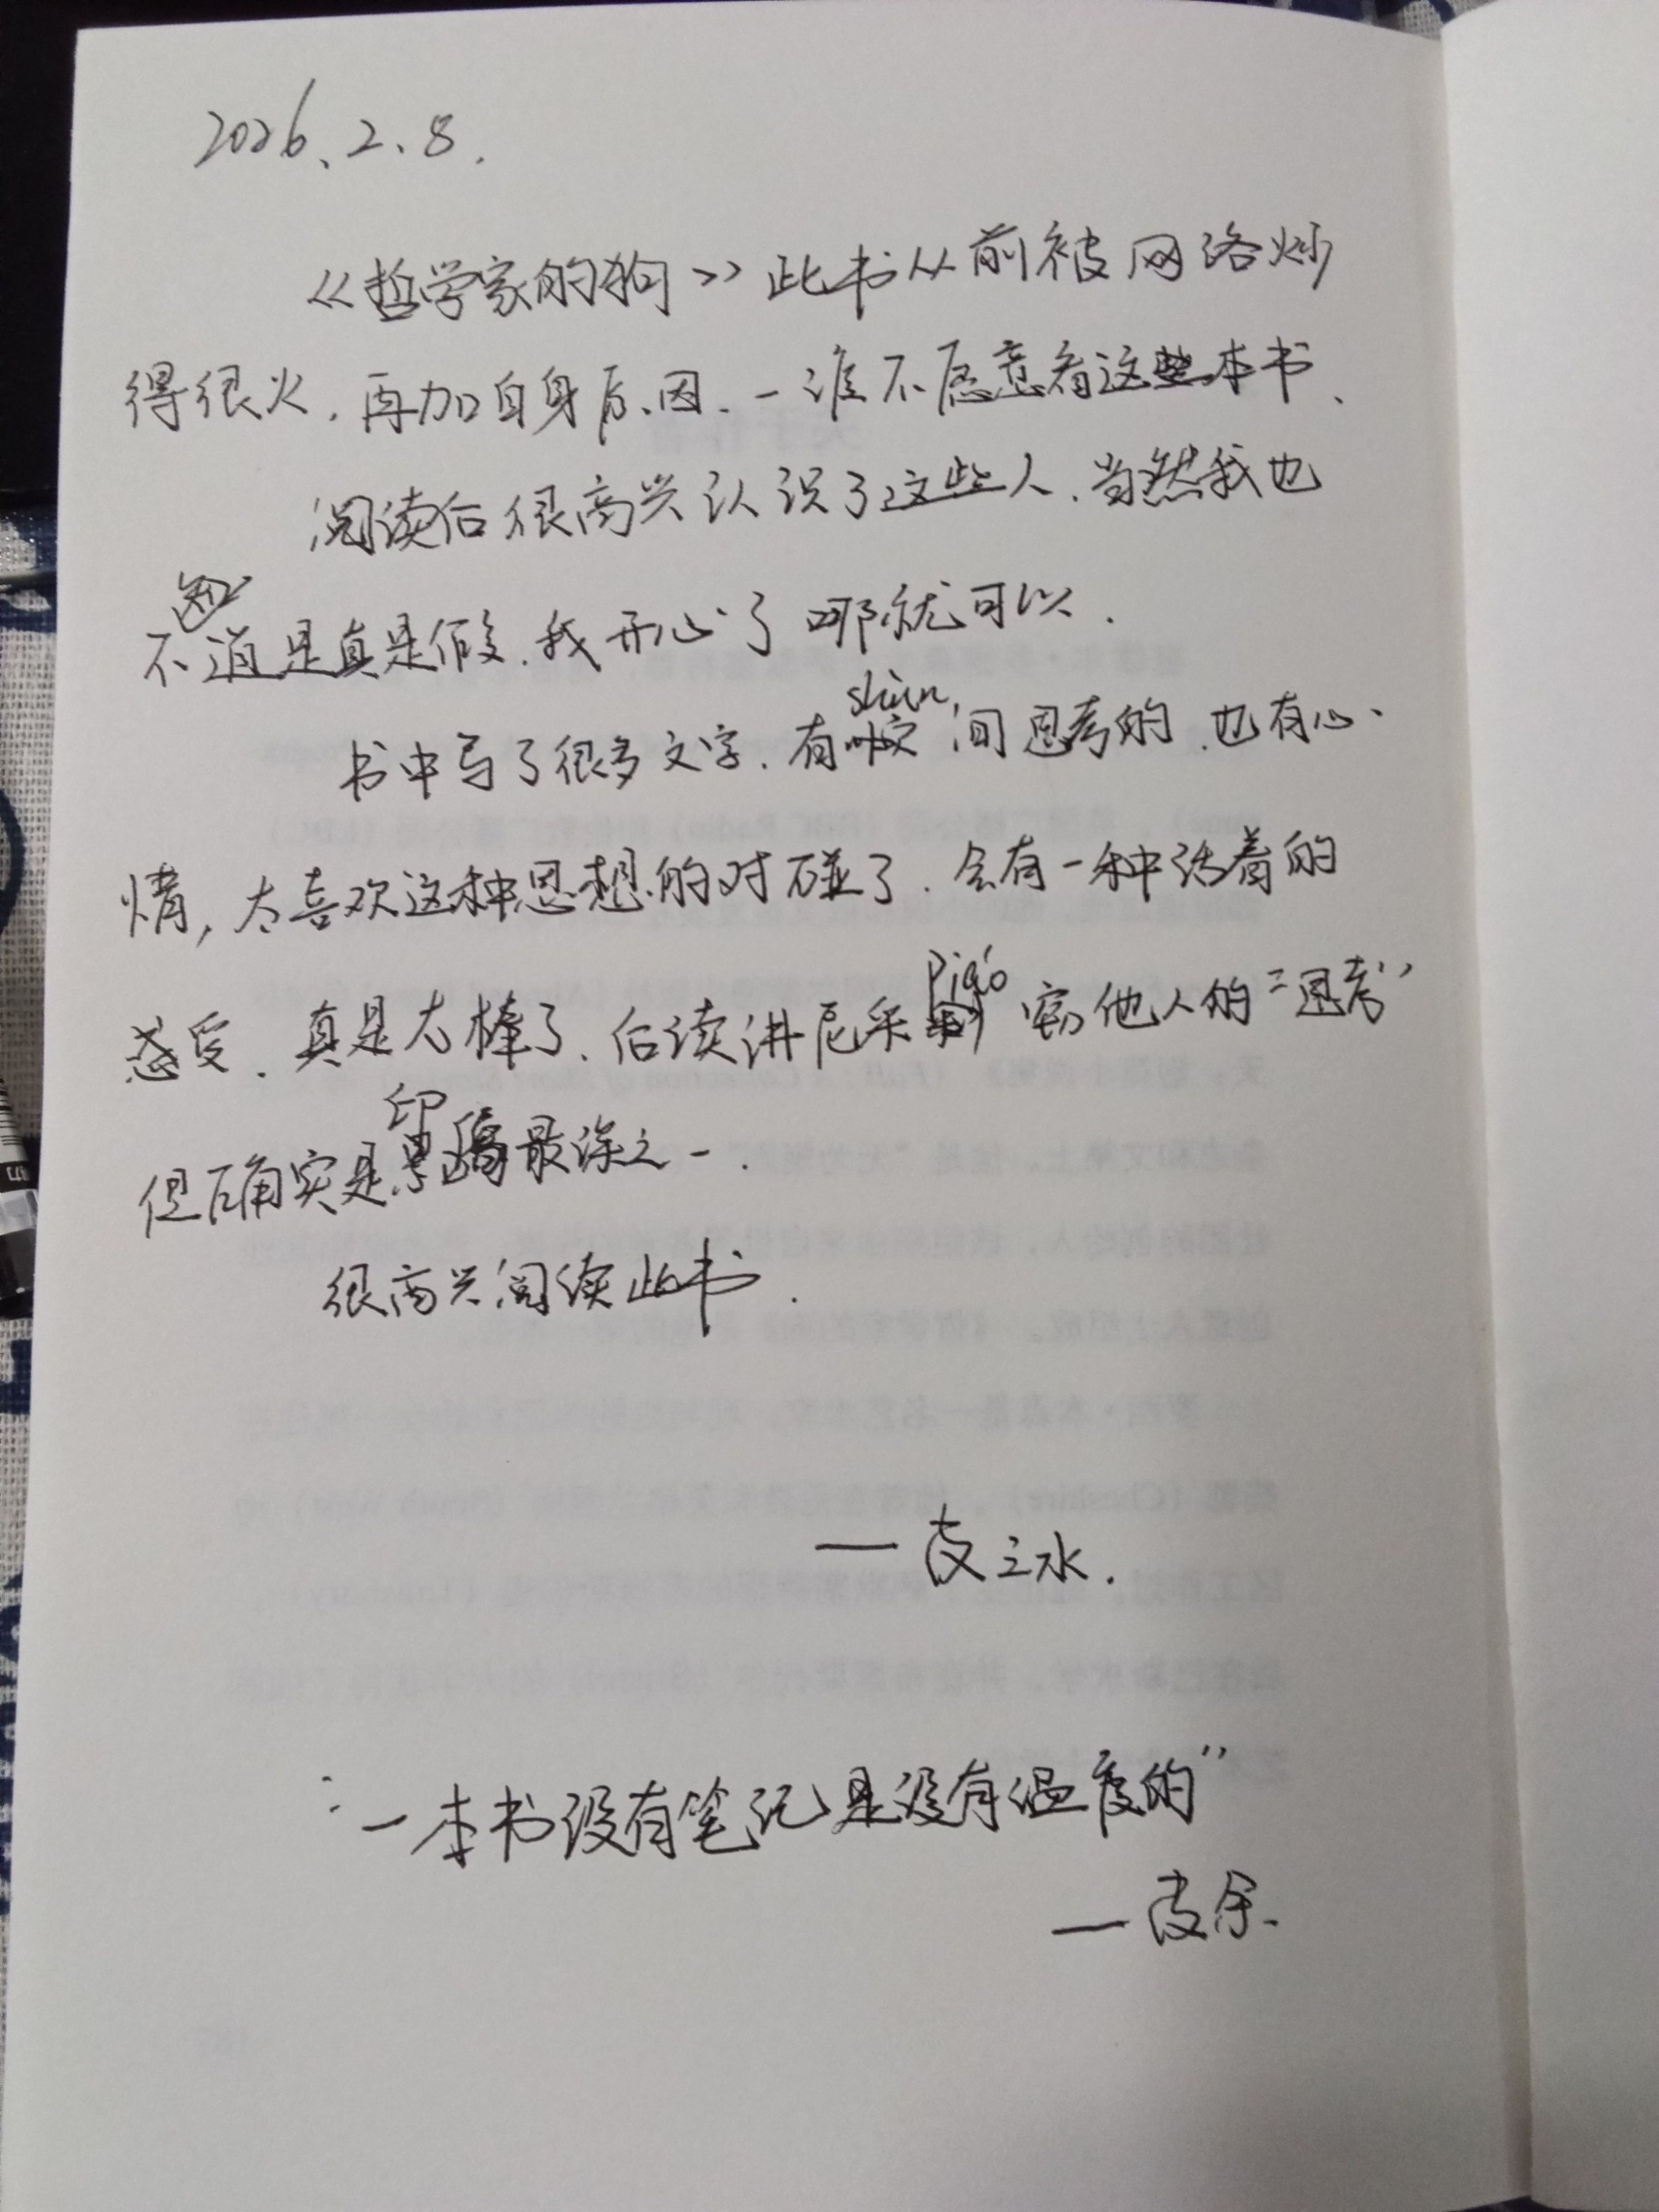 2026、2、8.
《哲学家的狗》此书从前被网络炒
得很火、再加自身原因、一谁不愿意看这些本书、
阅读后很高兴认识了这些人、当然我也
不知道是真是假、我开心了 哪就可以.
书中写了很多文字、有shùn间思考的、也有心
情，太喜欢这种思想的对碰了、会有一种活着的
感受、真是太棒了、后读讲尼采piáo窃他人的“思考”
但确实是印最深之一.
很高兴阅读此书.
— 皮之水.
“一本书没有笔记是没有温度的”
— 皮余.